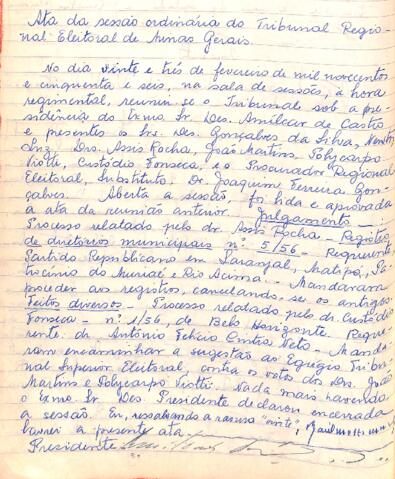 Ata da sessão ordinária do Tribunal Regio-
nal Eleitoral de Minas Gerais.
No dia vinte e três de fevereiro de mil novecentos
e cinquenta e seis, na sala de sessões, à hora
regimental, reuniu-se o Tribunal sob a pre-
sidência do Exmo. Sr. Des. Amilcar de Castro
e presentes os Srs. Des. Gonçalves da Silva, Newton
Luz, Drs. Assis Rocha, João Martins, Polycarpo
Viotti, Custódio Fonseca, e o Procurador Regional
Eleitoral, Substituto, Dr. Joaquim Ferreira Gon-
çalves. Aberta a sessão, foi lida e aprovada
a ata da reunião anterior. Julgamento -
Processo relatado pelo dr. Assis Rocha - Registro
de diretórios municipais nº 5/56 - Requerente,
Partido Republicano em Laranjal, Matipó, Pa-
trocínio do Muriaé e Rio Acima. - Mandaram
proceder aos registros, cancelando-se os antigos.
Feitos diversos - Processo relatado pelo dr. Custódio
Fonseca - nº 1/56, de Belo Horizonte. Reque-
rente: dr. Antônio Felício Cintra Neto - Manda-
ram encaminhar a sugestão ao Egrégio Tribu-
nal Superior Eleitoral, contra os votos dos Drs. João
Martins e Polycarpo Viotti. Nada mais havendo
o Exmo. Sr. Des. Presidente declarou encerrada
a sessão. Eu, ressalvando a rasura "vinte",
lavrei a presente ata.
Presidente